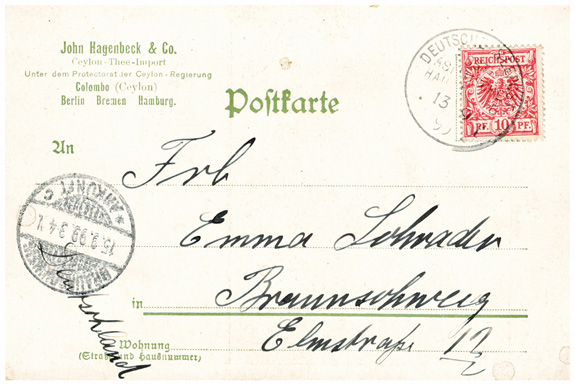 John Hagenbeck & Co.
Ceylon-Thee-Import
Unter dem Protectorat der Ceylon-Regierung
Colombo (Ceylon)
Berlin Bremen Hamburg.
Postkarte
REICHSPOST
10 PF.
An
Frl
Emma Schrader
in Braunschweig
Elmstraße 12
Wohnung
(Straße und Hausnummer)
Deutschland
ANKUNFT C.
15.9.99.3-4 V